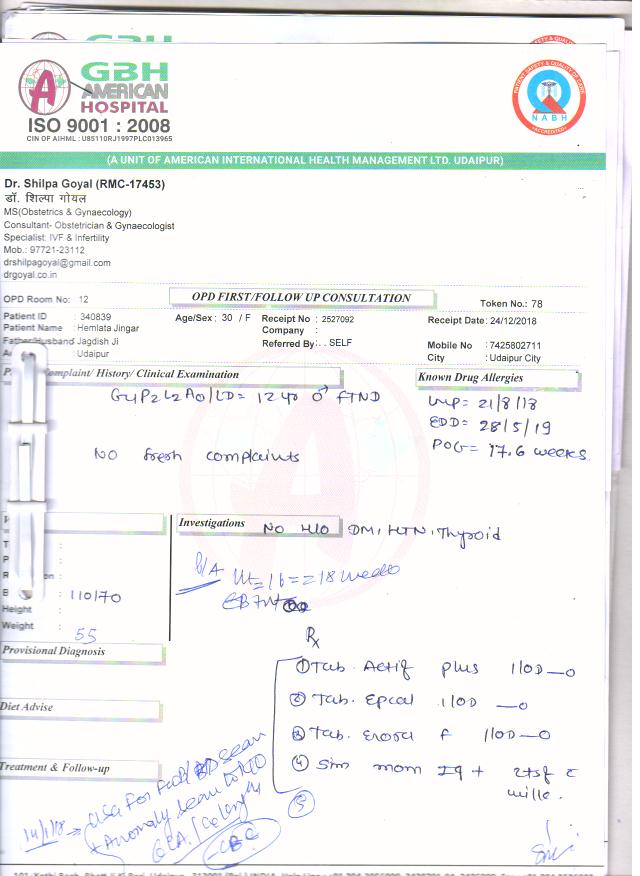 GBH
AMERICAN
HOSPITAL
ISO 9001 : 2008
CIN OF AIHML : U85110RJ1997PLC013965
PATIENT SAFETY & QUALITY OF CARE
NABH
ACCREDITED
(A UNIT OF AMERICAN INTERNATIONAL HEALTH MANAGEMENT LTD. UDAIPUR)
Dr. Shilpa Goyal (RMC-17453)
डॉ. शिल्पा गोयल
MS(Obstetrics & Gynaecology)
Consultant- Obstetrician & Gynaecologist
Specialist: IVF & Infertility
Mob.: 97721-23112
drshilpagoyal@gmail.com
drgoyal.co.in
OPD Room No: 12 OPD FIRST/FOLLOW UP CONSULTATION Token No.: 78
Patient ID : 340839 Age/Sex : 30 / F Receipt No : 2527092 Receipt Date: 24/12/2018
Patient Name : Hemlata Jingar Company :
Father/Husband Jagdish Ji Referred By: . . SELF Mobile No : 7425802711
: Udaipur City : Udaipur City
Complaint/ History/ Clinical Examination Known Drug Allergies
LD= 12 yr ♂ FTND LMP= 21/8/18
EDD= 28/5/19
POG= 17.6 weeks
No fresh complaints
Investigations No H/O DM, HTN, Thyroid
P/A
18 weeks
B : 110/70
Height :
Weight : 55
Rx
Provisional Diagnosis
① Tab. Actif plus 1 OD —0
② Tab. Epcal 1 OD —0
Diet Advise
③ Tab. F 1 OD —0
④ mom 2tsf c
milk.
Treatment & Follow-up
USG For
+ Anomaly scan to R/O
CBC
⑤